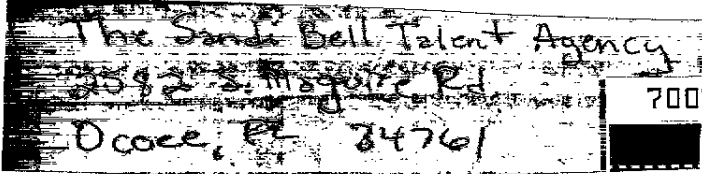 The Sandi Bell Talent Agency
2582 S. Maguire Rd.
Ocoee, FL 34761
700